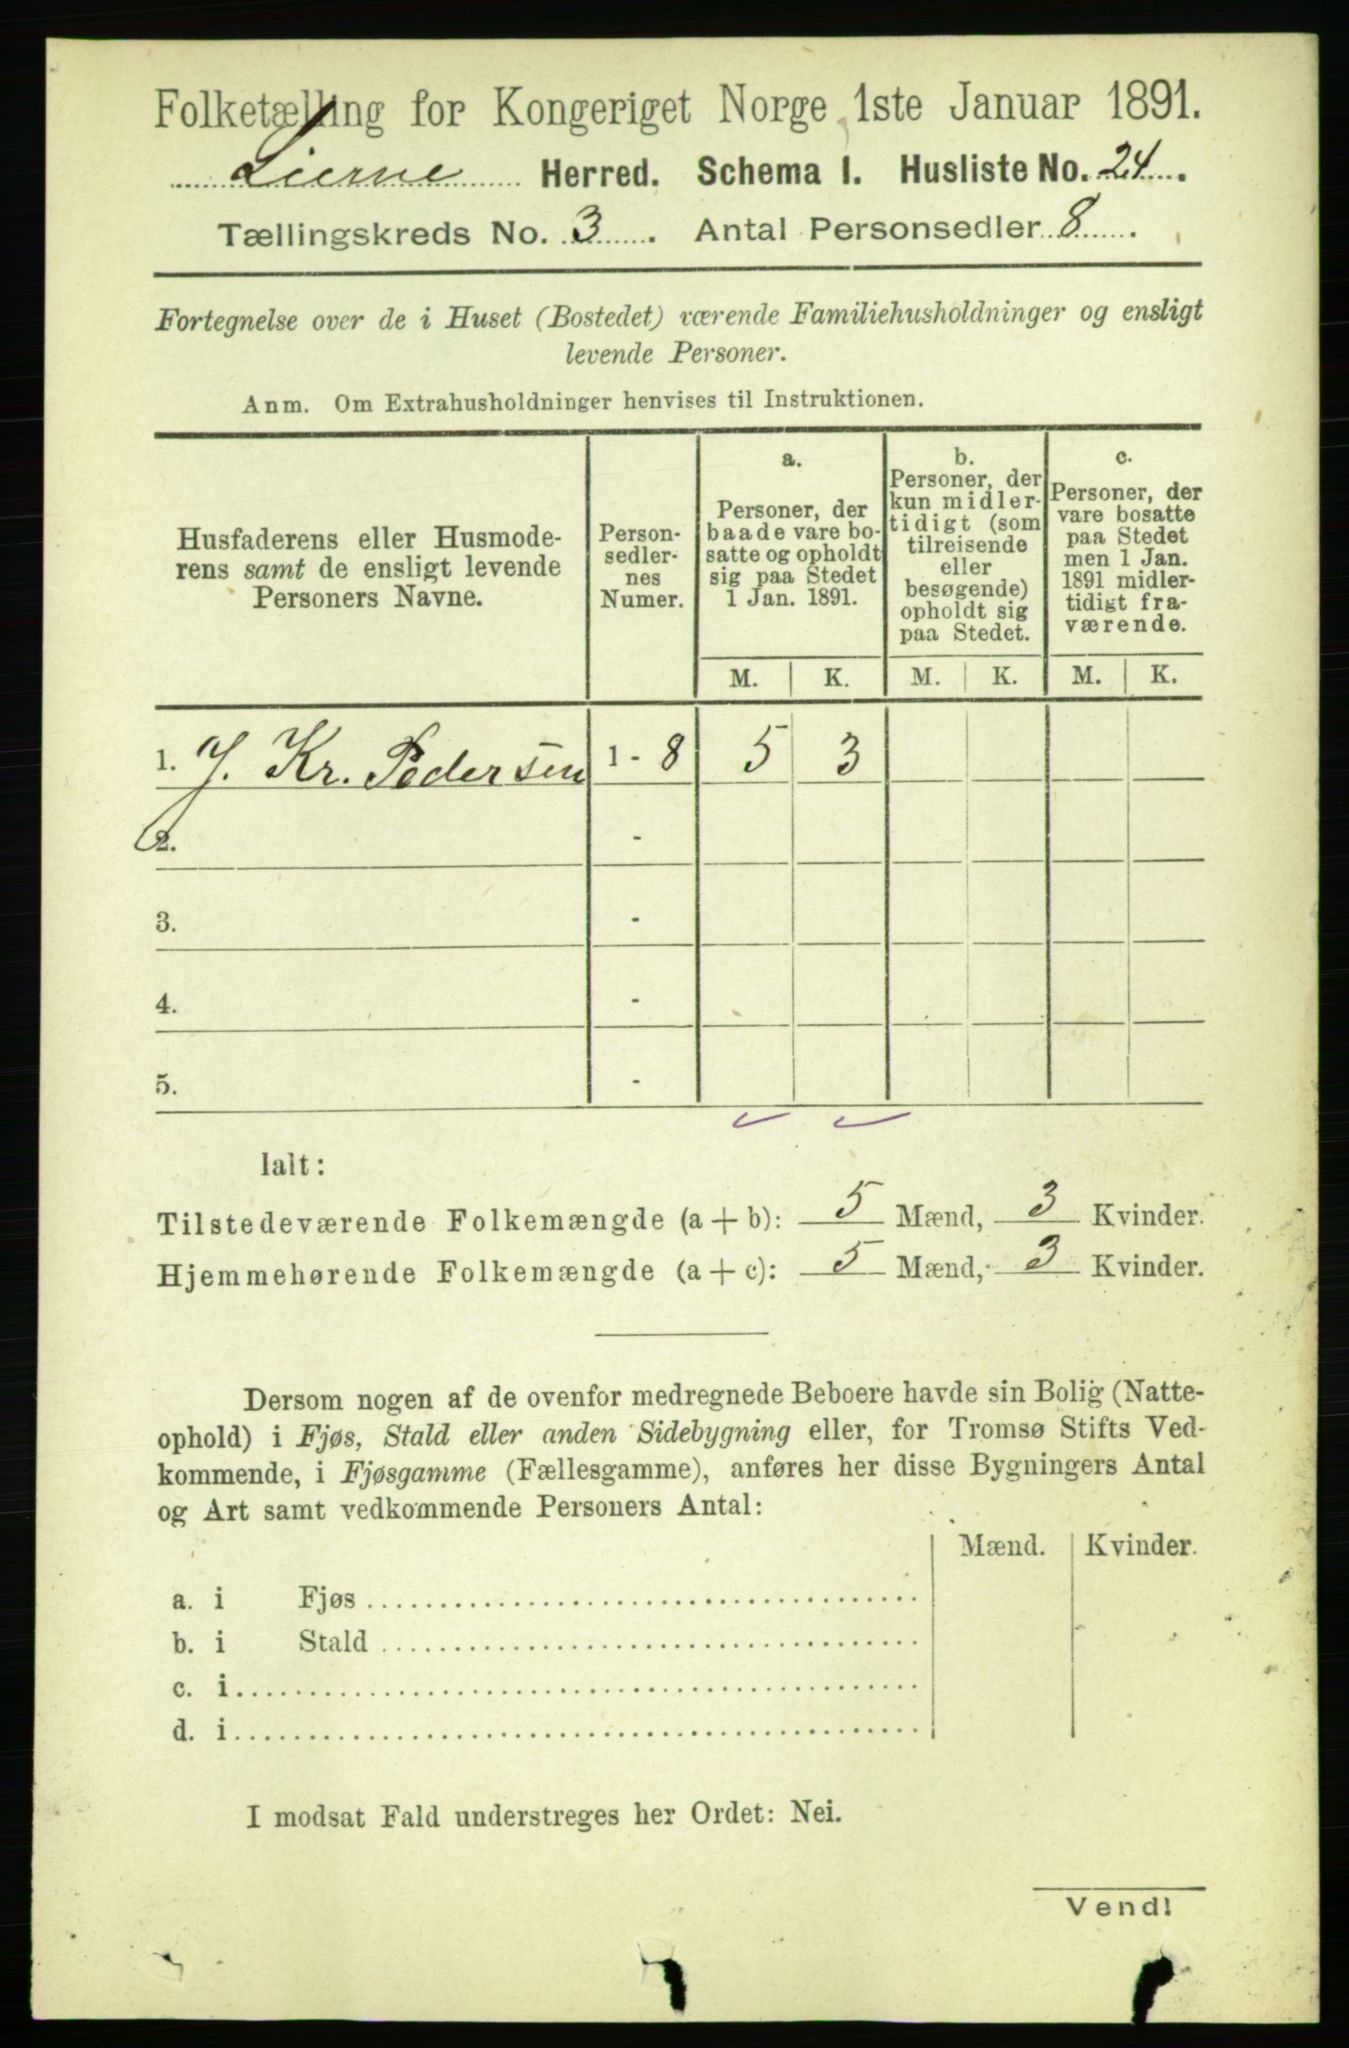 Folketælling for Kongeriget Norge 1ste Januar 1891.
Lierne Herred. Schema I. Husliste No. 24.
Tællingskreds No. 3. Antal Personsedler 8.
Fortegnelse over de i Huset (Bostedet) værende Familiehusholdninger og ensligt
levende Personer.
Anm. Om Extrahusholdninger henvises til Instruktionen.
Husfaderens eller Husmode-
rens samt de ensligt levende
Personers Navne.
Person-
sedler-
nes
Numer.
a.
Personer, der
baade vare bo-
satte og opholdt
sig paa Stedet
1 Jan. 1891.
b.
Personer, der
kun midler-
tidigt (som
tilreisende
eller
besøgende)
opholdt sig
paa Stedet.
c.
Personer, der
vare bosatte
paa Stedet
men 1 Jan.
1891 midler-
tidigt fra-
værende.
M. K. M. K. M. K.
1. J. Kr. Pedersen 1 - 8 5 3
2. -
3. -
4. -
5. -
Ialt:
Tilstedeværende Folkemængde (a + b): 5 Mænd, 3 Kvinder.
Hjemmehørende Folkemængde (a + c): 5 Mænd, 3 Kvinder.
Dersom nogen af de ovenfor medregnede Beboere havde sin Bolig (Natte-
ophold) i Fjøs, Stald eller anden Sidebygning eller, for Tromsø Stifts Ved-
kommende, i Fjøsgamme (Fællesgamme), anføres her disse Bygningers Antal
og Art samt vedkommende Personers Antal:
Mænd. Kvinder.
a. i Fjøs
b. i Stald
c. i
d. i
I modsat Fald understreges her Ordet: Nei.
Vend!